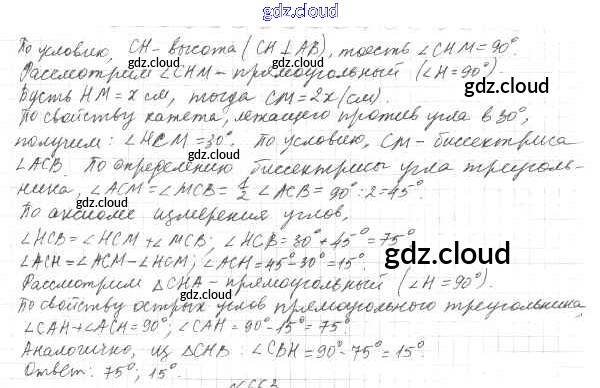 gdz.cloud
По условию, CH - высота (CH ⊥ AB), то есть ∠CHM = 90°.
Рассмотрим ∠CHM - прямоугольный (∠H = 90°).
Пусть HM = x см, тогда CM = 2x (см).
По свойству катета, лежащего против угла в 30°,
получим: ∠HCM = 30°. По условию, CM - биссектриса
∠ACB. По определению биссектрисы угла треуголь-
ника, ∠ACM = ∠MCB = 1/2 ∠ACB = 90° : 2 = 45°.
По аксиоме измерения углов,
∠HCB = ∠HCM + ∠MCB; ∠HCB = 30° + 45° = 75°
∠ACH = ∠ACM - ∠HCM; ∠ACH = 45° - 30° = 15°.
Рассмотрим △CHA - прямоугольный (∠H = 90°).
По свойству острых углов прямоугольного треугольника,
∠CAH + ∠ACH = 90°; ∠CAH = 90° - 15° = 75°.
Аналогично, из △CHB: ∠CBH = 90° - 75° = 15°.
Ответ: 75°; 15°.
gdz.cloud
gdz.cloud
gdz.cloud
gdz.cloud
gdz.cloud
gdz.cloud
gdz.cloud
gdz.cloud
gdz.cloud